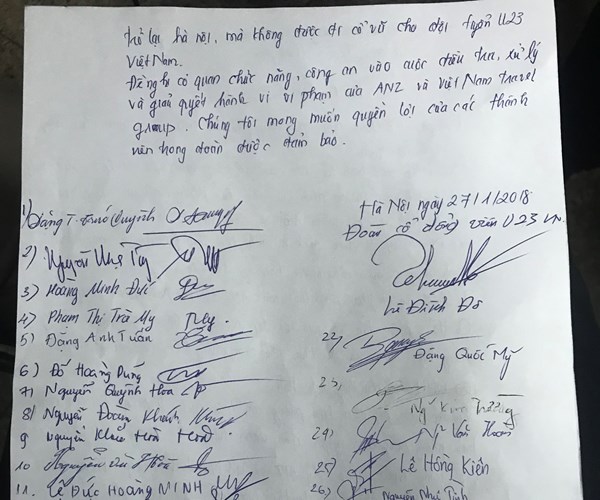 trở lại hà nội, mà không được đi cổ vũ cho đội tuyển U23
Việt Nam.
Đề nghị cơ quan chức năng, công an vào cuộc điều tra, xử lý
và giải quyết hành vi vi phạm của ANZ và Việt Nam travel
group. Chúng tôi mong muốn quyền lợi của các thành
viên trong đoàn được đảm bảo.
Hà Nội, ngày 27/1/2018
Đoàn cổ động viên U23 VN.
Lê Đình Đô
1) Đặng T. Quỳnh
2) Nguyễn
3) Hoàng Minh Đức
4) Phạm Thị Trà My
5) Đặng Anh Tuấn
6) Đỗ Hoàng Dung
7) Nguyễn Quỳnh Hoa
8) Nguyễn Đoàn Khánh
9 Nguyễn
10 Nguyễn
11. Lê Đức Hoàng MINH
22) Đặng Quốc Mỹ
23)
24)
25) Lê Hồng Kiên
26) Nguyễn Như Tình